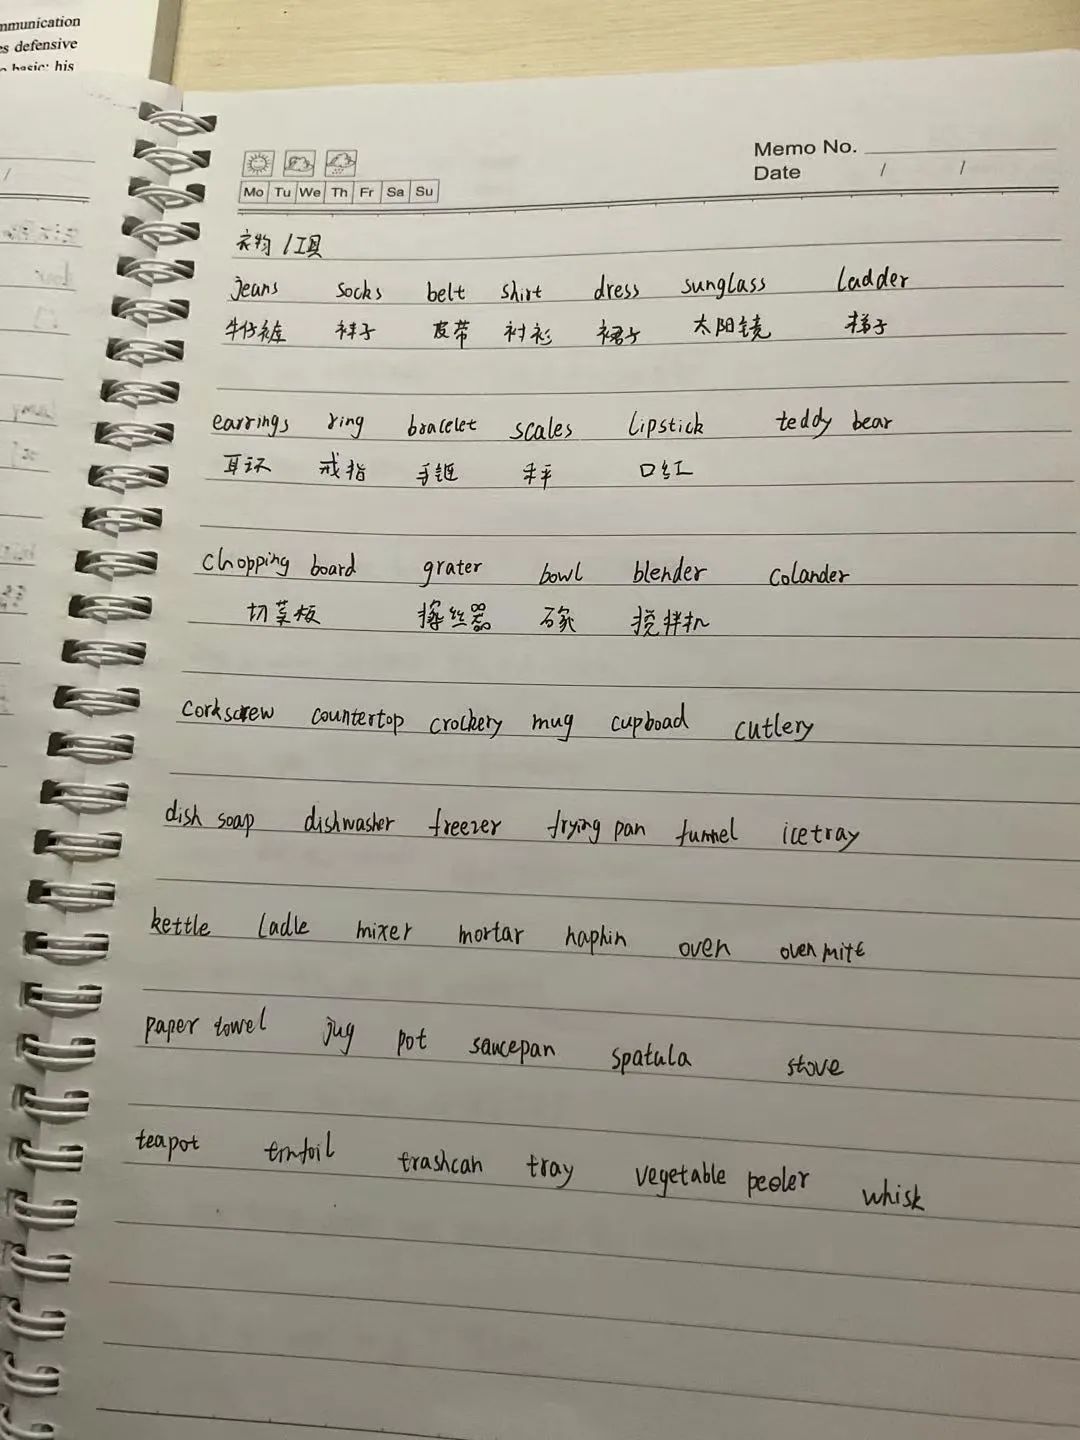 mmunication
es defensive
basic; his
Memo No.
Date / /
Mo Tu We Th Fr Sa Su
衣物/工具
jeans socks belt shirt dress sunglass ladder
牛仔裤 袜子 皮带 衬衫 裙子 太阳镜 梯子
earrings ring bracelet scales lipstick teddy bear
耳环 戒指 手链 口红
chopping board grater bowl blender colander
切菜板 擦丝器 碗 搅拌机
corkscrew countertop crockery mug cupboad cutlery
dish soap dishwasher freezer frying pan funnel ice tray
kettle ladle mixer mortar napkin oven oven mitt
paper towel jug pot saucepan spatula stove
teapot tinfoil trashcan tray vegetable peeler whisk